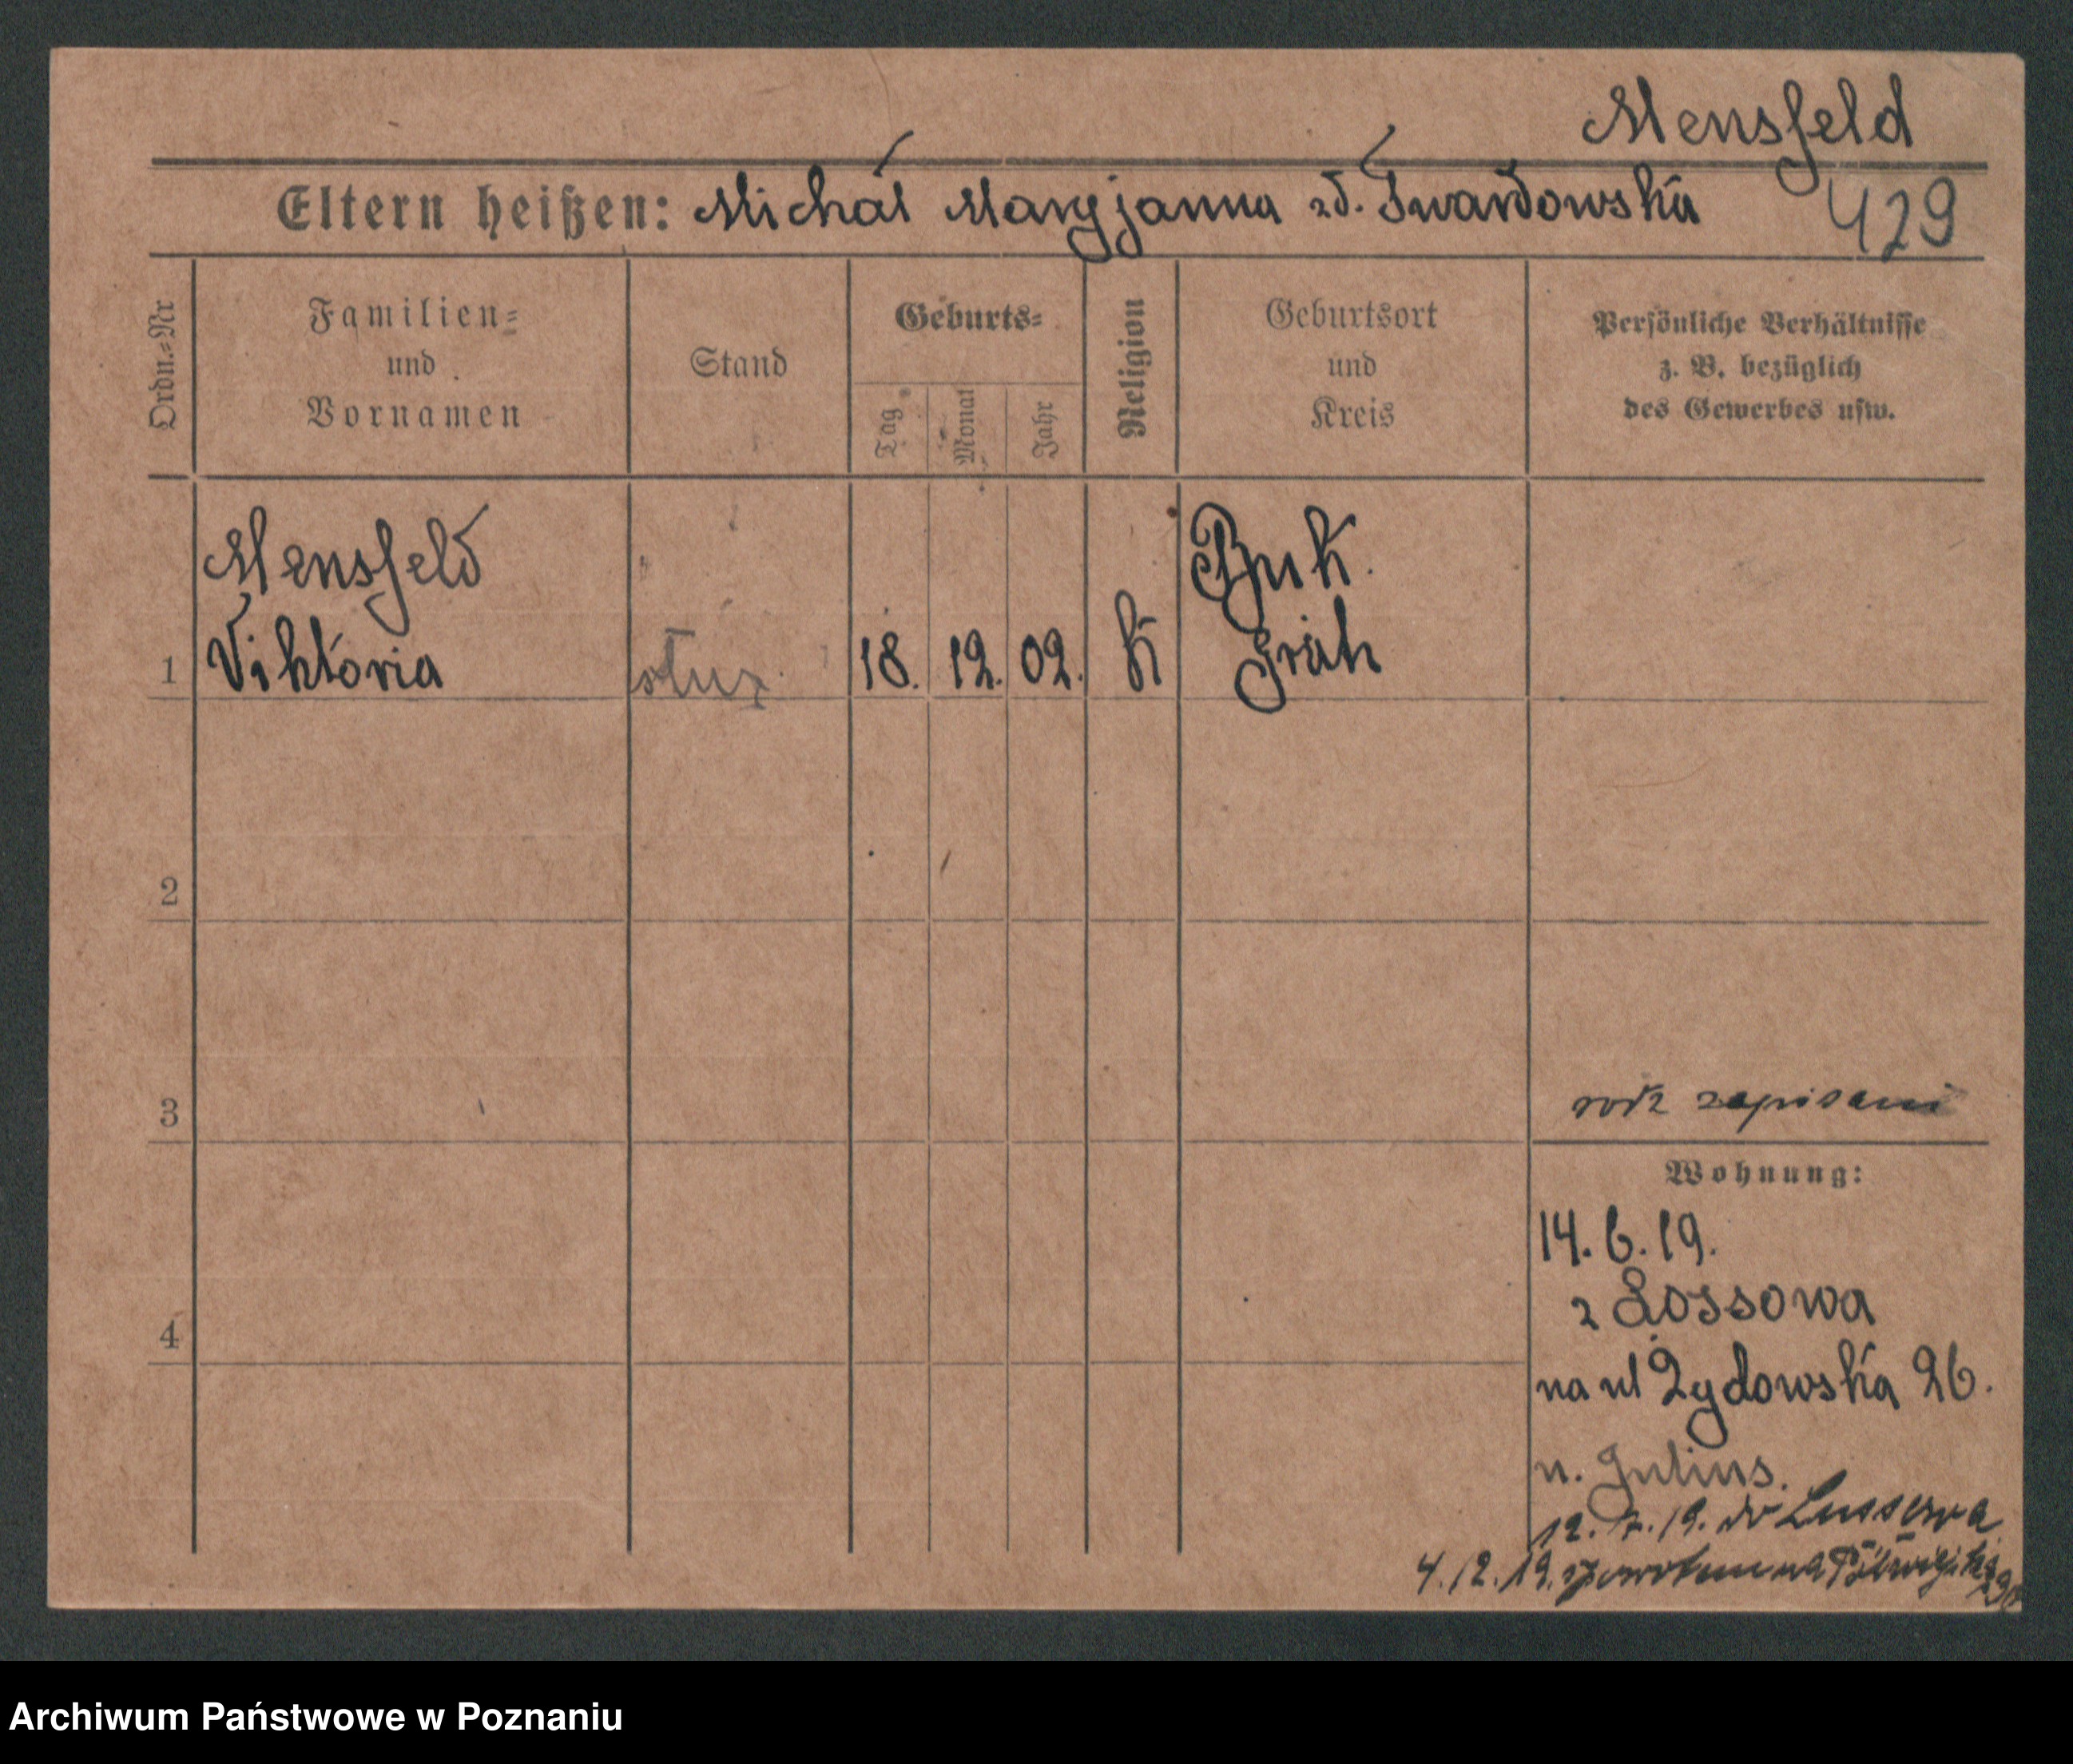 Mensfeld
Eltern heißen: Michał Maryjanna zd. Twardowska
429
Ordn.-Nr
Familien-
und
Vornamen
Stand
Geburts-
Tag
Monat
Jahr
Religion
Geburtsort
und
Kreis
Persönliche Verhältnisse
z. B. bezüglich
des Gewerbes usw.
Mensfeld
Viktoria
1
służ
18. 12. 02.
K
Buk.
Grätz
2
3
rodz zapisani
Wohnung:
14. 6. 19.
z Lossowa
4
na ul Żydowska 26.
u. Julius.
12. 7. 19. do Lussowa
4. 12. 19. z powrotem na
Archiwum Państwowe w Poznaniu